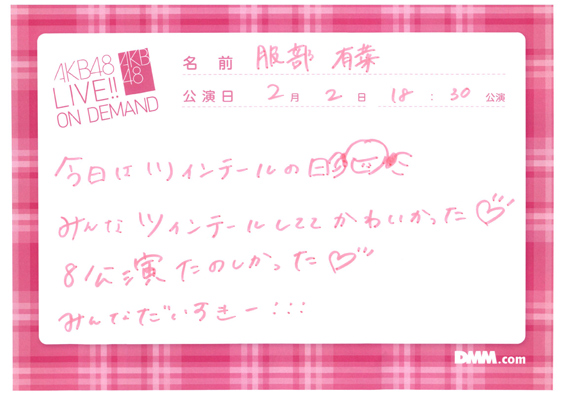 AKB48
LIVE!!
ON DEMAND
AKB
48
名前 服部 有菜
公演日 2月 2日 18:30 公演
今日はツインテールの日
みんなツインテールしててかわいかった♡
8公演たのしかった♡
みんなだいすきー:::
DMM.com